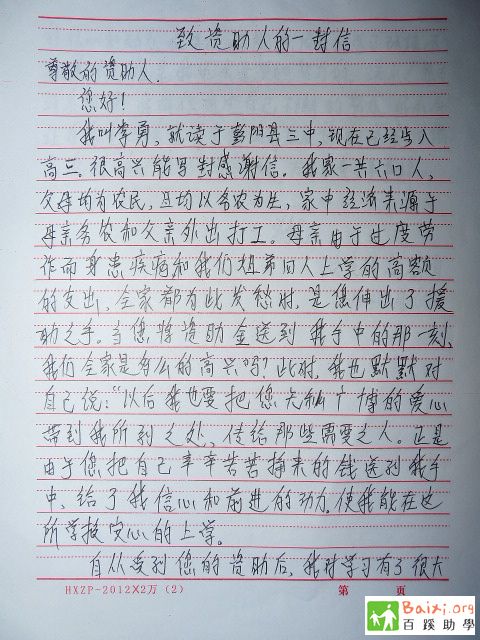 致资助人的一封信
尊敬的资助人.
您好!
我叫李勇,就读于彭阳县三中,现在已经步入
高三.很高兴能写封感谢信。我家一共六口人,
父母均为农民,且均以务农为生,家中经济来源于
母亲务农和父亲外出打工。母亲由于过度劳
作而身患疾病和我们姐弟四人上学的高额
的支出,全家都为此发愁时,是您伸出了援
助之手。当您将资助金送到我手中的那一刻,
我们全家是多么的高兴吗?此时,我也默默对
自己说:“以后我也要把您无私广博的爱心
带到我所到之处,传给那些需要之人。正是
由于您把自己辛辛苦苦挣来的钱送到我手
中,给了我信心和前进的动力,使我能在这
所学校安心的上学。
自从受到您的资助后,我对学习有了很大
HXZP-2012X2万(2) 第 页
Baixi.org
百蹊助學